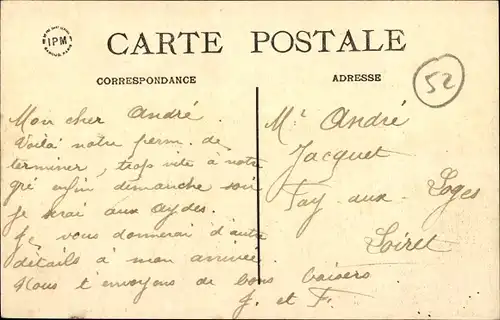 IPM
CARTE POSTALE
CORRESPONDANCE
ADRESSE
52
Mon cher André.
Voilà notre perm. de
terminer, trop vite à notre
gré enfin dimanche soir
je serai aux Aydes.
Je vous donnerai d'autre
détails à mon arrivée.
Nous t'envoyons de bons baisers
J. et F.
Mr André
Jacquet
Fay-aux-Loges
Loiret